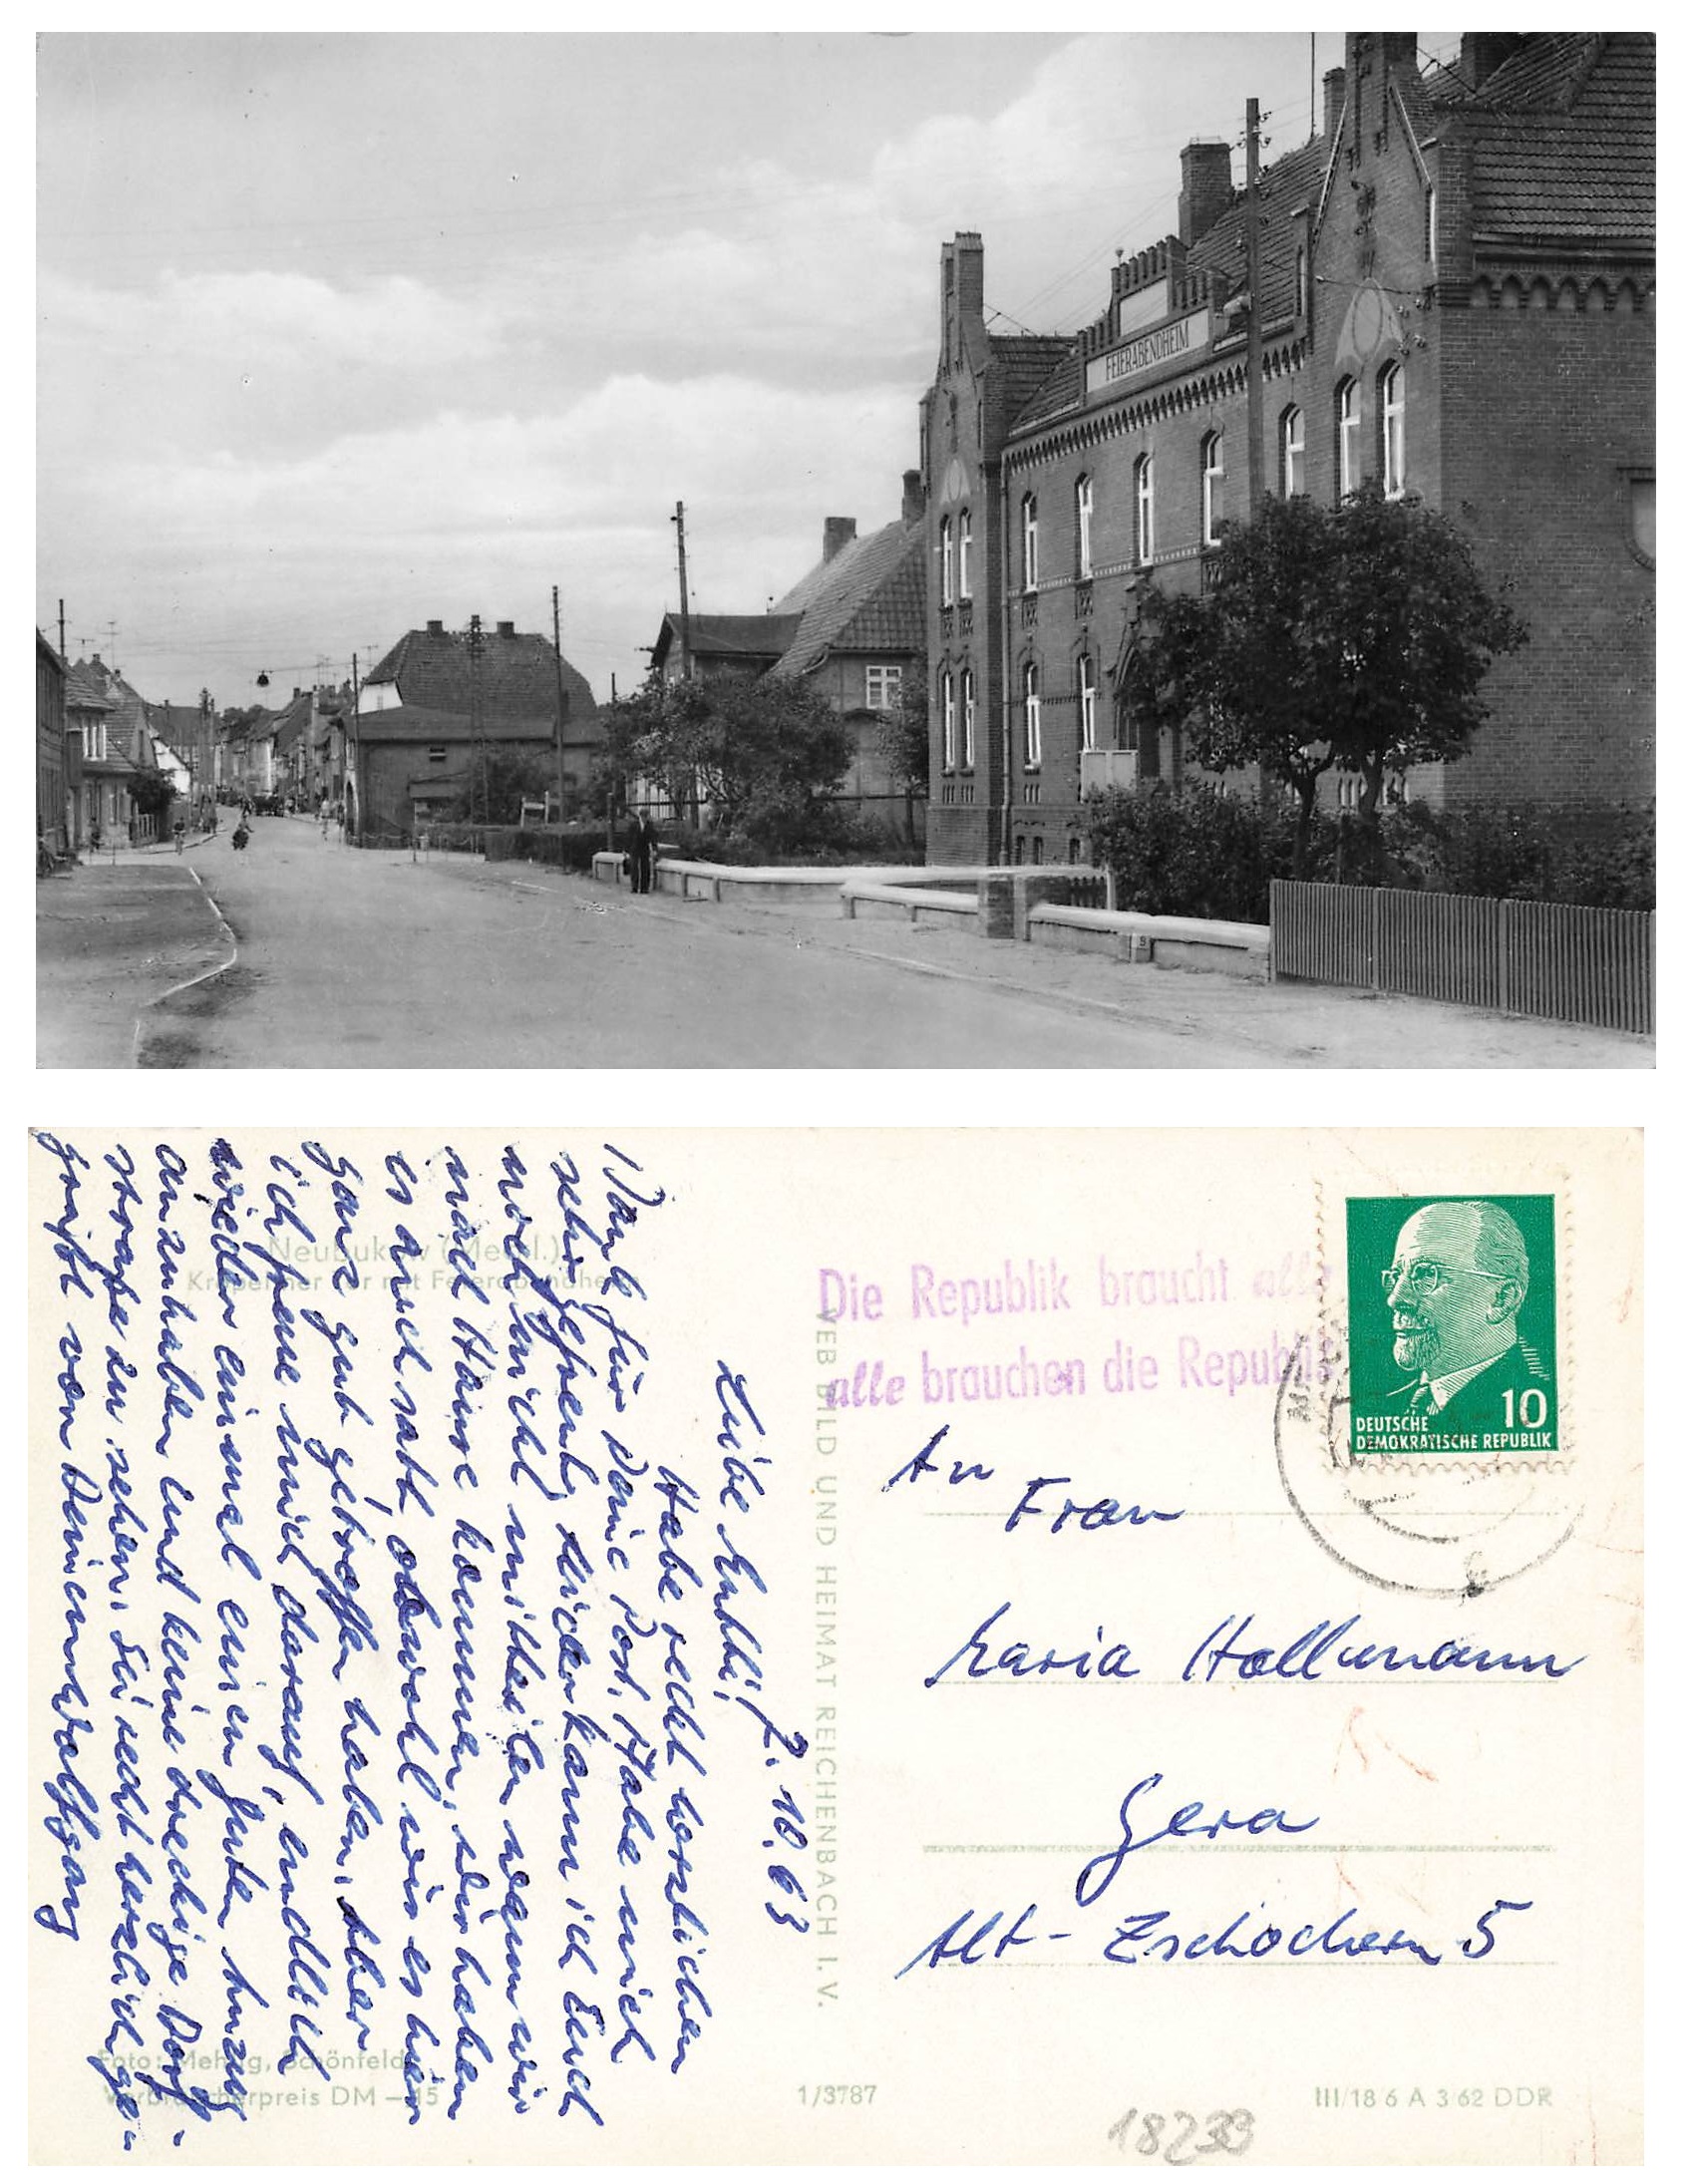 FEIERABENDHEIM
Neubukow (Meckl.)
Kröpeliner Tor mit Feierabendheim
7. 10. 63
Liebe Mutti!
Habe recht herzlichen
Dank für Deine Post. Habe mich
sehr gefreut, leider kann ich Euch
noch nicht mitteilen wann wir
nach Hause kommen, wir haben
es auch satt obwohl wir es hier
ganz gut getroffen haben. Aber
ich freue mich darauf, endlich
wieder einmal einen guten Anzug
anzuhaben und keine dreckige Dorf-
strasse zu sehen. Sei recht herzlich ge-
grüßt von Deinem Wolfgang
Foto: Mehlig, Schönfeld
Verbraucherpreis DM –,15
VEB BILD UND HEIMAT REICHENBACH I. V.
1/3787
Die Republik braucht alle
alle brauchen die Republik
DEUTSCHE
DEMOKRATISCHE REPUBLIK
10
An
Frau
Maria Hallmann
Gera
Alt-Zschochern 5
III/18 6 A 3 62 DDR
18233